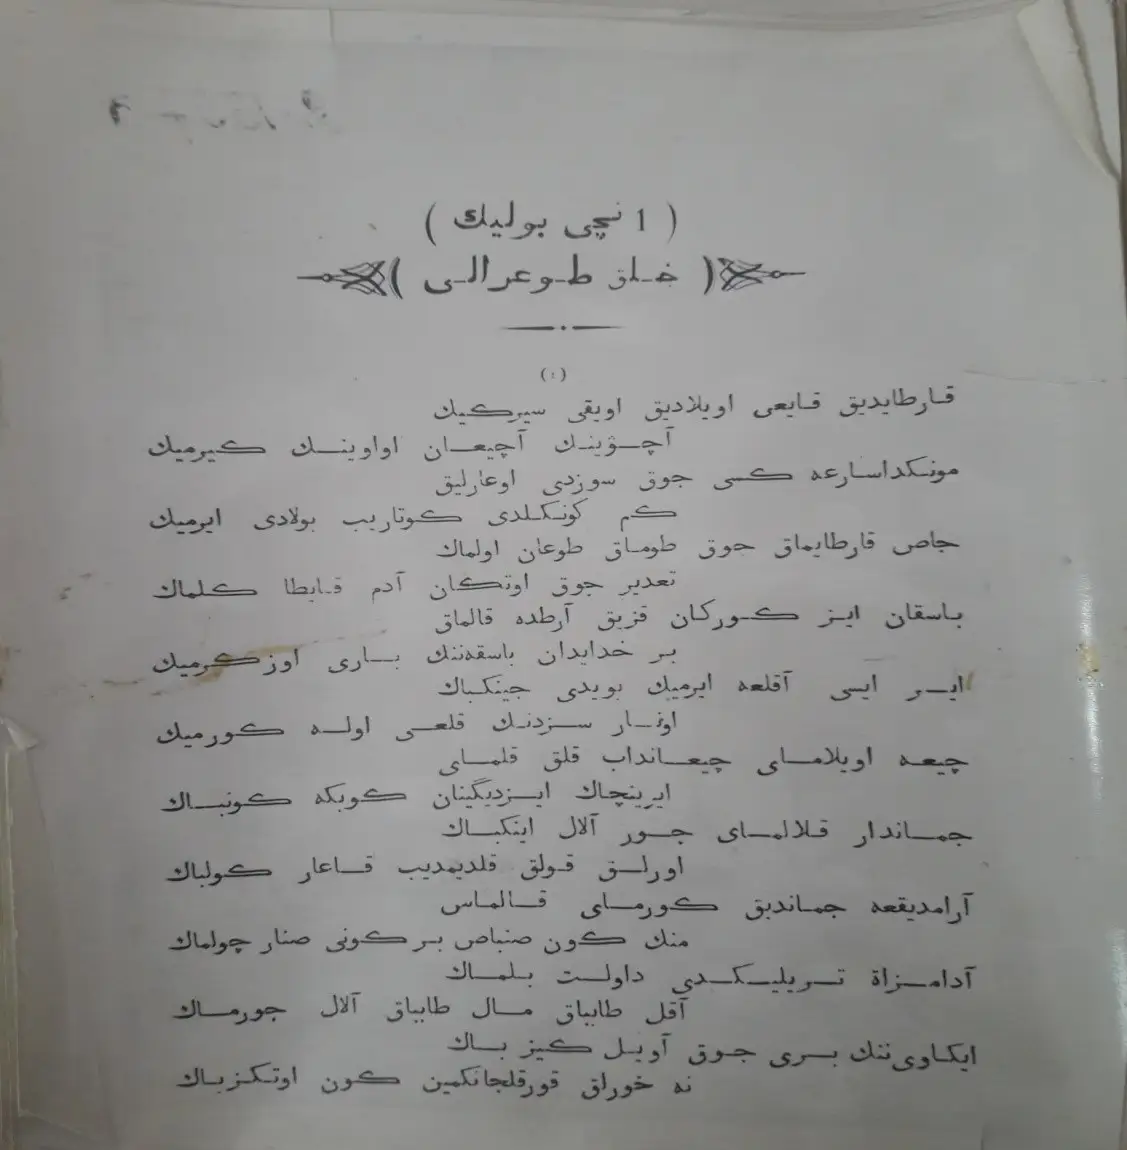 ( 1 نچی بولیك )
( خلق طوعرالی )
قارطایدیق قایعی اویلادیق اویقی سیرکیك
آچوینك آچیعان اواوینك کیرمیك
مونکداسارعه کسی جوق سوزدی اوعارلیق
کم کونکلدی کوتاریب بولادی ایرمیك
جاص قارطایماق جوق طوماق طوعان اولماك
تعدیر جوق اوتکان آدم قایطا کلماك
باسقان ایز کورکان قزیق آرطده قالماق
بر خدایدان باسقەننك باری اوزکرمیك
ایر ایسی آقلعه ایرمیك بویدی جینکباك
اونار سزدنك قلعی اوله کورمیك
چیعه اویلامای چیعانداب قلق قلمای
ایرینچاك ایزدیگینان کوبکه کونباك
جماندار قلالمای جور آلال اینکباك
اورلق قولق قلدیمدیب قاعار کولباك
آرامدیقعه جماندیق کورمای قالماس
منك کون صنباص برکونی صنار چولماك
آدامزاة تریلیکدی داولت بلماك
آقل طابباق مال طابباق آلال جورماك
ایکاوی‌ننك بری جوق آویل کیز باك
نه خوراق قورقلجانکمین کون اوتکزباك